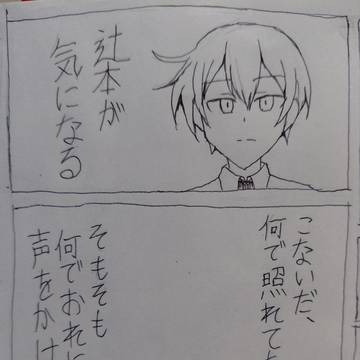 辻本が
気になる
こないだ、
何で照れてた
そもそも
何でおれに
声をかけ